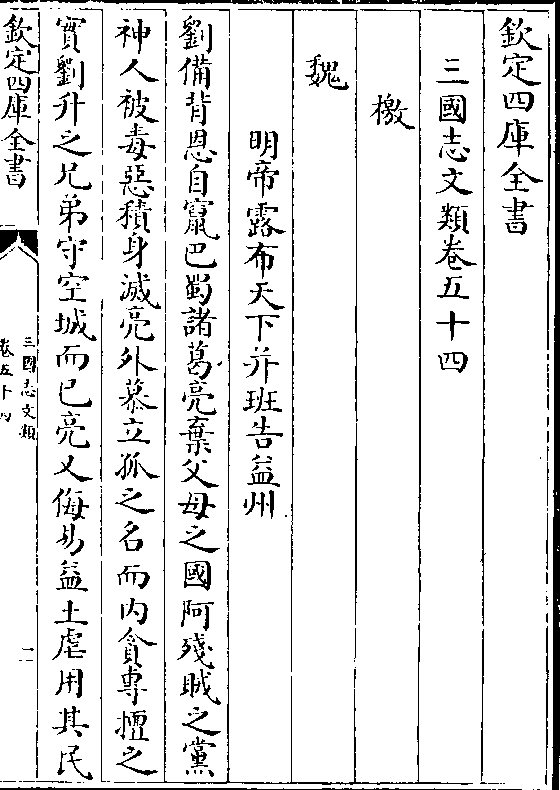 欽定四庫全書
三國志文類卷五十四
檄
魏
明帝露布天下并班告益州
劉備背恩自竄巴蜀諸葛亮棄父母之國阿殘賊之黨
神人被毒惡積身滅亮外慕立孤之名而内貪專擅之
實劉升之兄弟守空城而已亮又侮易益土虐用其民
欽定四庫全書
三國志文類
卷五十四